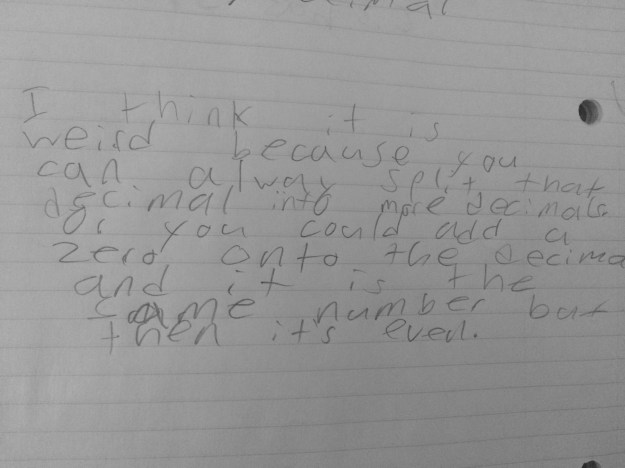 decimal
I think it is
weird because you
can alway split that
decimal into more decimals
Or you could add a
zero onto the decima
and it is the
same number but
then it's even.